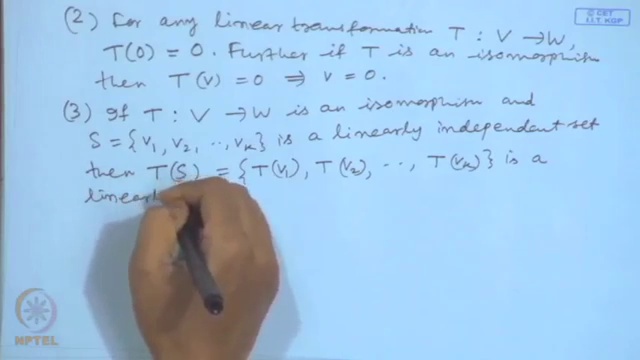 (2) For any linear transformation T : V → W,
T(0) = 0. Further if T is an isomorphism
then T(v) = 0 ⇒ v = 0.
(3) If T : V → W is an isomorphism and
S = {v₁, v₂, .., vₖ} is a linearly independent set
then T(S) = {T(v₁), T(v₂), .., T(vₖ)} is a
linearl
© CET
I.I.T. KGP
NPTEL